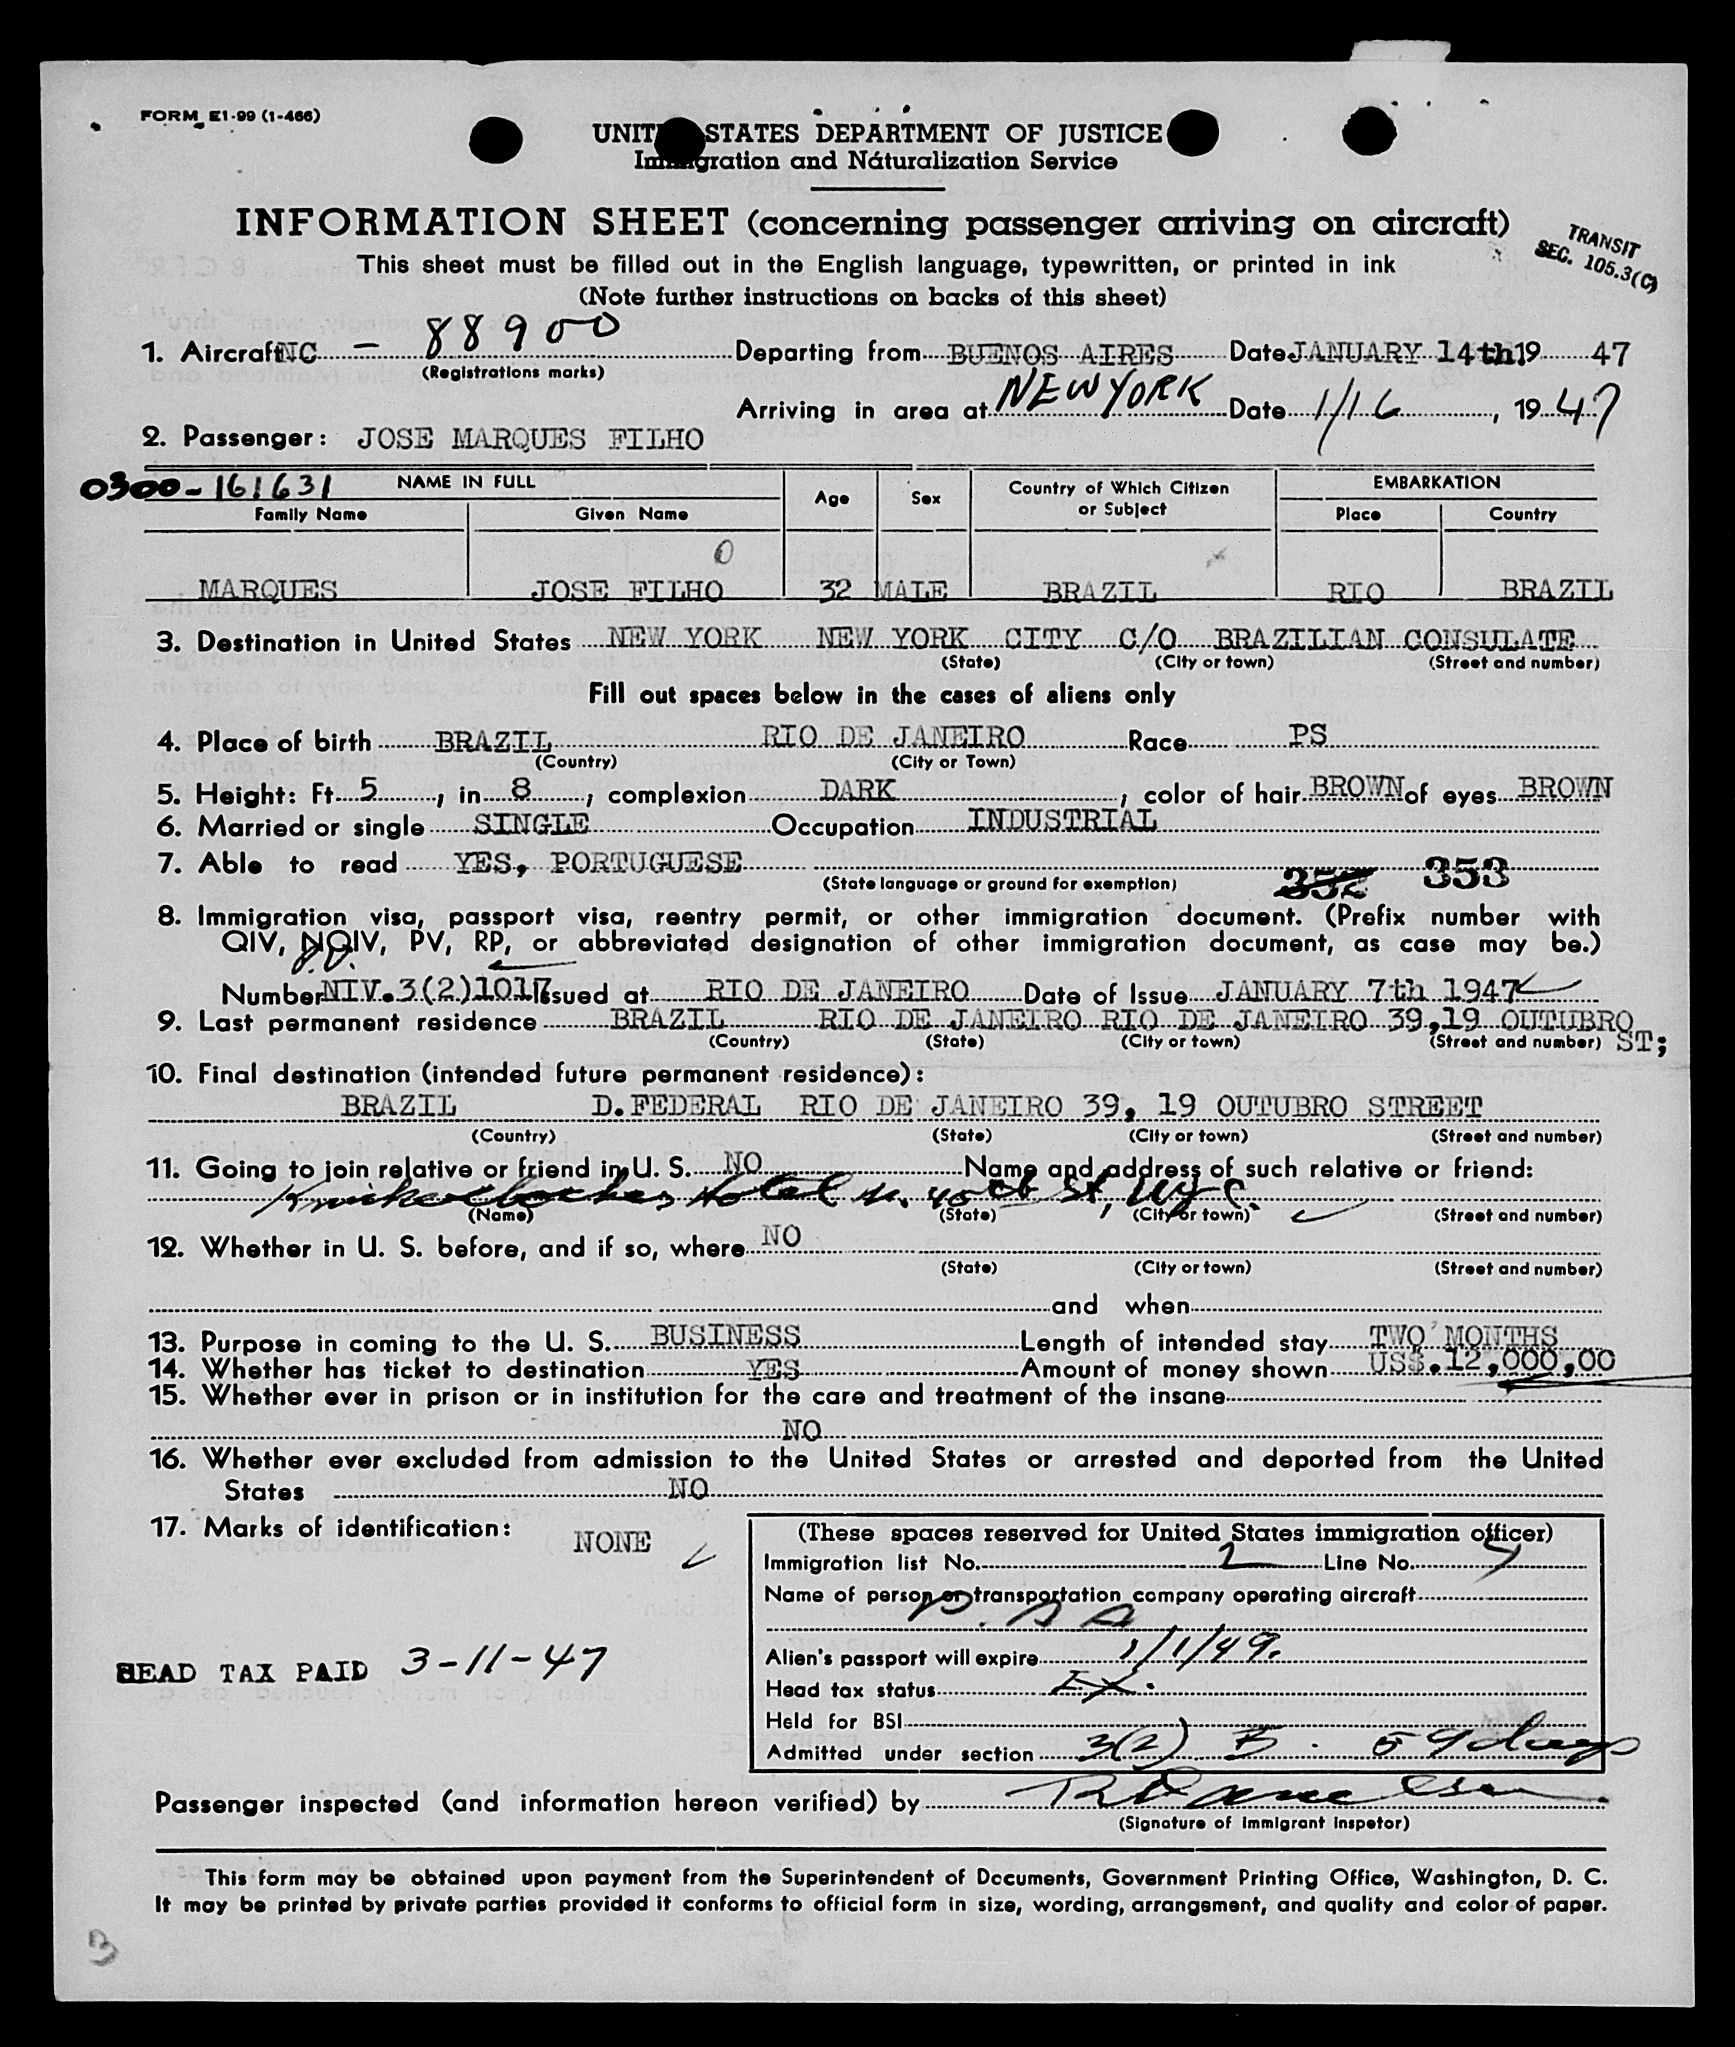 FORM E1-99 (1-466)
UNIT STATES DEPARTMENT OF JUSTICE
Immigration and Naturalization Service
INFORMATION SHEET (concerning passenger arriving on aircraft)
TRANSIT
SEC. 105.3(C)
This sheet must be filled out in the English language, typewritten, or printed in ink
(Note further instructions on backs of this sheet)
1. Aircraft NC - 88900 Departing from BUENOS AIRES Date JANUARY 14th. 19 47
(Registrations marks)
Arriving in area at NEW YORK Date 1/16, 19 47
2. Passenger: JOSE MARQUES FILHO
0300-161631 NAME IN FULL Age Sex Country of Which Citizen or Subject EMBARKATION
Family Name Given Name Place Country
0
MARQUES JOSE FILHO 32 MALE BRAZIL RIO BRAZIL
3. Destination in United States NEW YORK NEW YORK CITY C/O BRAZILIAN CONSULATE
(State) (City or town) (Street and number)
Fill out spaces below in the cases of aliens only
4. Place of birth BRAZIL RIO DE JANEIRO Race PS
(Country) (City or Town)
5. Height: Ft. 5, in. 8, complexion DARK, color of hair BROWN of eyes BROWN
6. Married or single SINGLE Occupation INDUSTRIAL
7. Able to read YES, PORTUGUESE
(State language or ground for exemption) 352 353
8. Immigration visa, passport visa, reentry permit, or other immigration document. (Prefix number with
QIV, NQIV, PV, RP, or abbreviated designation of other immigration document, as case may be.)
Number NIV.3(2)1017 Issued at RIO DE JANEIRO Date of Issue JANUARY 7th 1947
9. Last permanent residence BRAZIL RIO DE JANEIRO RIO DE JANEIRO 39,19 OUTUBRO
(Country) (State) (City or town) (Street and number) ST;
10. Final destination (intended future permanent residence):
BRAZIL D.FEDERAL RIO DE JANEIRO 39, 19 OUTUBRO STREET
(Country) (State) (City or town) (Street and number)
11. Going to join relative or friend in U. S. NO Name and address of such relative or friend:
Knickerbocker Hotel W. 45th St, NYC.
(Name) (State) (City or town) (Street and number)
12. Whether in U. S. before, and if so, where NO
(State) (City or town) (Street and number)
and when
13. Purpose in coming to the U. S. BUSINESS Length of intended stay TWO MONTHS
14. Whether has ticket to destination YES Amount of money shown US$.12,000,00
15. Whether ever in prison or in institution for the care and treatment of the insane
NO
16. Whether ever excluded from admission to the United States or arrested and deported from the United
States NO
17. Marks of identification: NONE
(These spaces reserved for United States immigration officer)
Immigration list No. 2 Line No. 7
Name of person or transportation company operating aircraft
P.A.A
Alien's passport will expire 1/1/49.
HEAD TAX PAID 3-11-47
Head tax status Ex.
Held for BSI
Admitted under section 3(2) B. 59 days
Passenger inspected (and information hereon verified) by
(Signature of Immigrant Inspetor)
This form may be obtained upon payment from the Superintendent of Documents, Government Printing Office, Washington, D. C.
It may be printed by private parties provided it conforms to official form in size, wording, arrangement, and quality and color of paper.
B